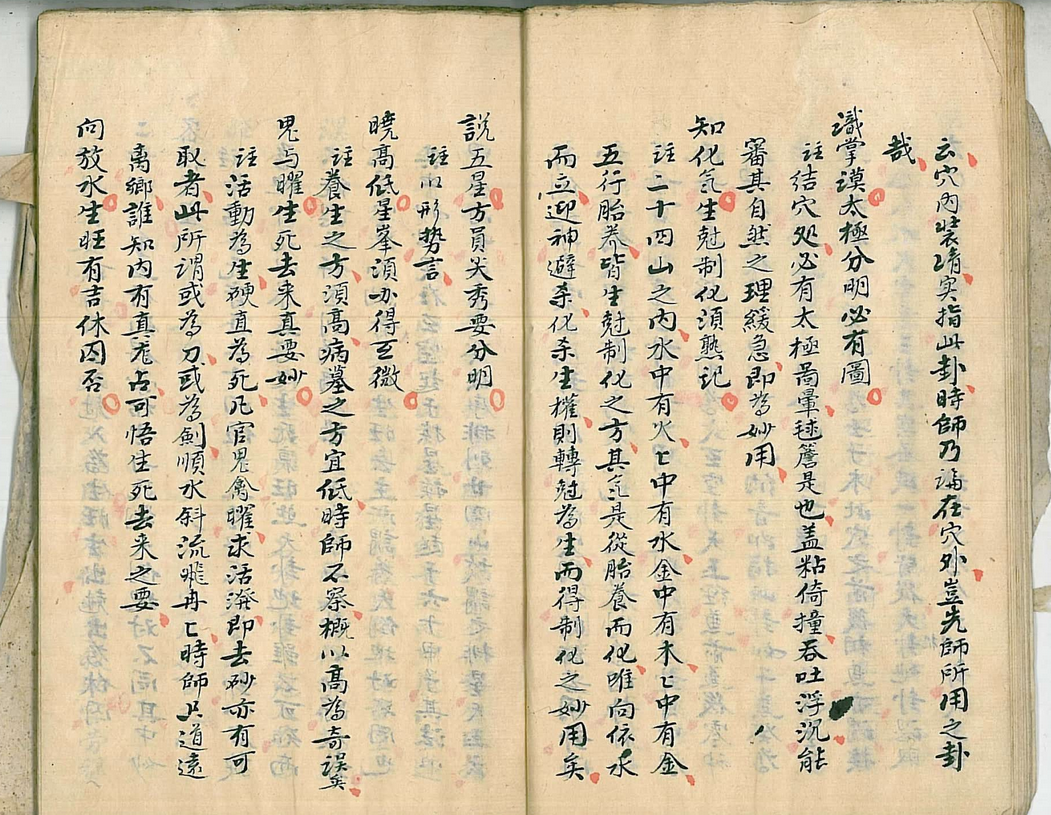 云穴內裝清实指此卦時師乃論在穴外豈先師所用之卦
哉
識掌謨太極分明必有圖
註結穴処必有太極啚暈毬簷是也盖粘倚撞吞吐浮沉能
審其自然之理緩急即為妙用
知化氣生尅制化須熟记
註二十四山之內水中有火〻中有水金中有木〻中有金
五行胎养皆生尅制化之方其气是從胎養而化唯向依水
而立迎神避杀化杀生權則轉尅為生而得制化之妙用矣
說五星方員尖秀要分明
註以形势言
曉高低星峯須办得玄微
註養生之方須高病墓之方宜低時師不察概以高為奇誤矣
鬼与曜生死去来真要妙
註活動為生硬直為死凡官鬼禽曜求活潑即去砂亦有可
取者此所謂或為刀或為劍順水斜流飛冉〻時師只道遠
离鄉誰知内有真龙占可悟生死去来之要
向放水生旺有吉休囚否